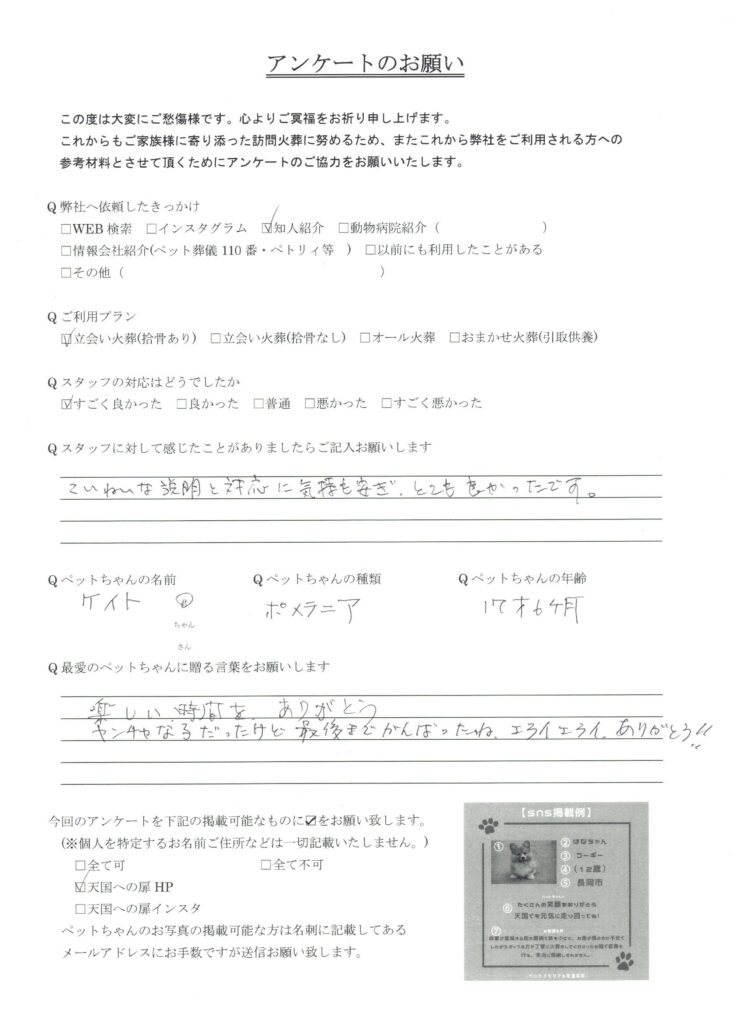 アンケートのお願い
この度は大変にご愁傷様です。心よりご冥福をお祈り申し上げます。
これからもご家族様に寄り添った訪問火葬に努めるため、またこれから弊社をご利用される方への
参考材料とさせて頂くためにアンケートのご協力をお願いいたします。
Q 弊社へ依頼したきっかけ
□WEB 検索 □インスタグラム ☑知人紹介 □動物病院紹介（ ）
□情報会社紹介(ペット葬儀 110 番・ペトリィ等 ) □以前にも利用したことがある
□その他（ ）
Q ご利用プラン
☑立会い火葬(拾骨あり) □立会い火葬(拾骨なし) □オール火葬 □おまかせ火葬(引取供養)
Q スタッフの対応はどうでしたか
☑すごく良かった □良かった □普通 □悪かった □すごく悪かった
Q スタッフに対して感じたことがありましたらご記入お願いします
ていねいな説明と対応に気持も安ぎ、とても良かったです。
Q ペットちゃんの名前 Q ペットちゃんの種類 Q ペットちゃんの年齢
ケイト ポメラニア 17才6ヶ月
ちゃん
さん
Q 最愛のペットちゃんに贈る言葉をお願いします
楽しい時間を ありがとう
ヤンチャな子だったけど最後までがんばったね、エライエライ、ありがとう!!
今回のアンケートを下記の掲載可能なものに☑をお願い致します。
(※個人を特定するお名前ご住所などは一切記載いたしません。)
□全て可 □全て不可
☑天国への扉 HP
□天国への扉インスタ
ペットちゃんのお写真の掲載可能な方は名刺に記載してある
メールアドレスにお手数ですが送信お願い致します。
【sns掲載例】
① ② はなちゃん
③ コーギー
④ (12歳)
⑤ 長岡市
⑥ たくさんの笑顔をありがとう
天国でも元気に走り回ってね！
⑦